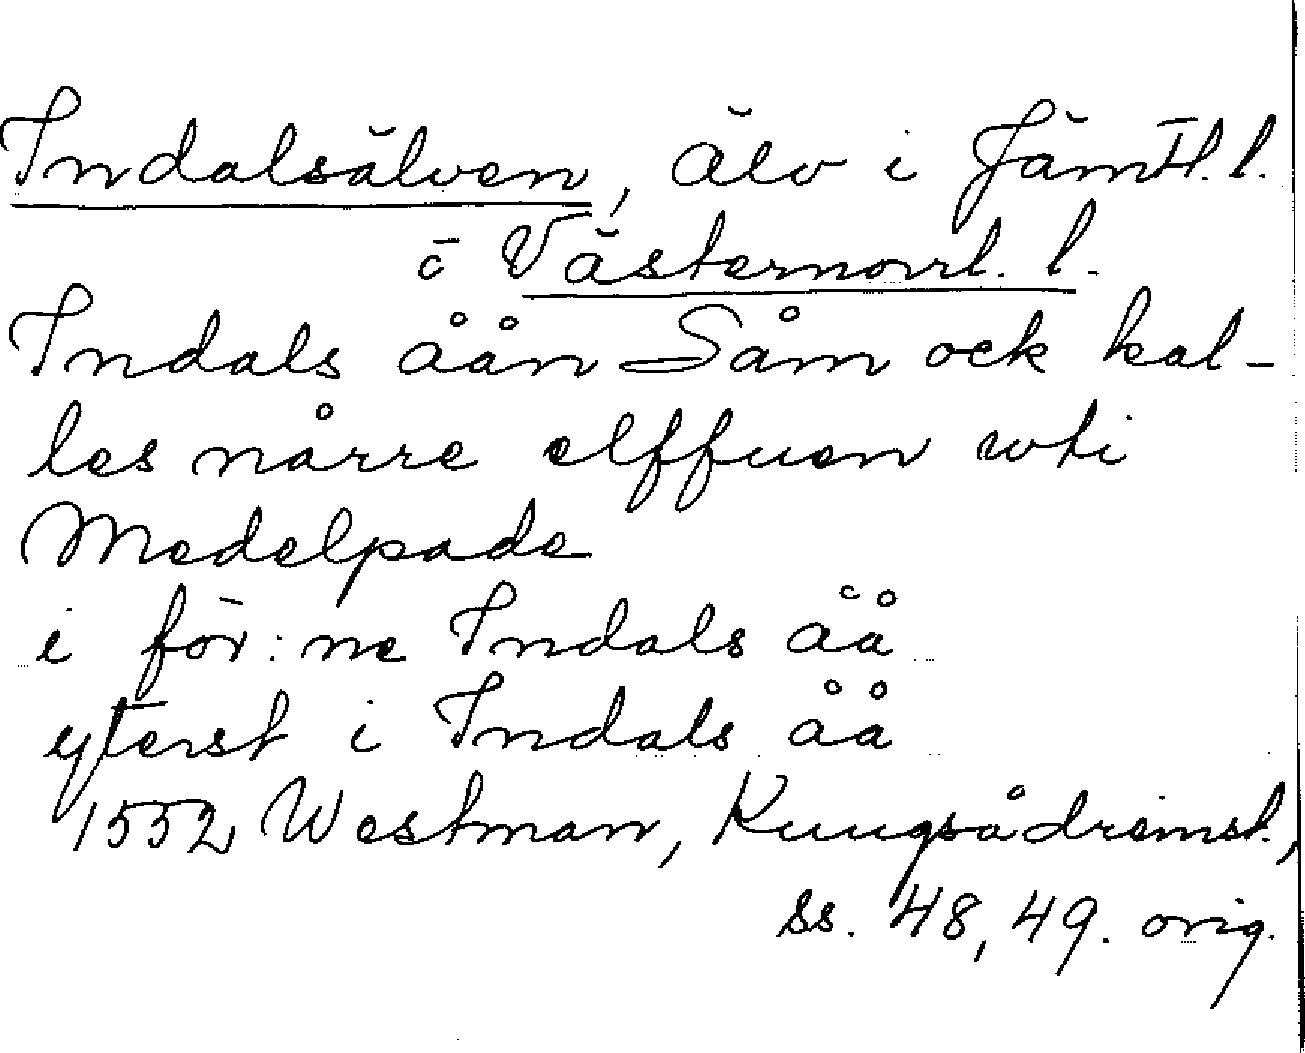 Indalsälven, älv i Jämtl. l.
o Västernorrl. l.
Indals åån Såm ock kal-
les nårre elffuen wti
Medelpade
i för:ne Indals åå
yterst i Indals åå
1552 Westman, Kungsådreinst.,
ss. 48, 49. orig.